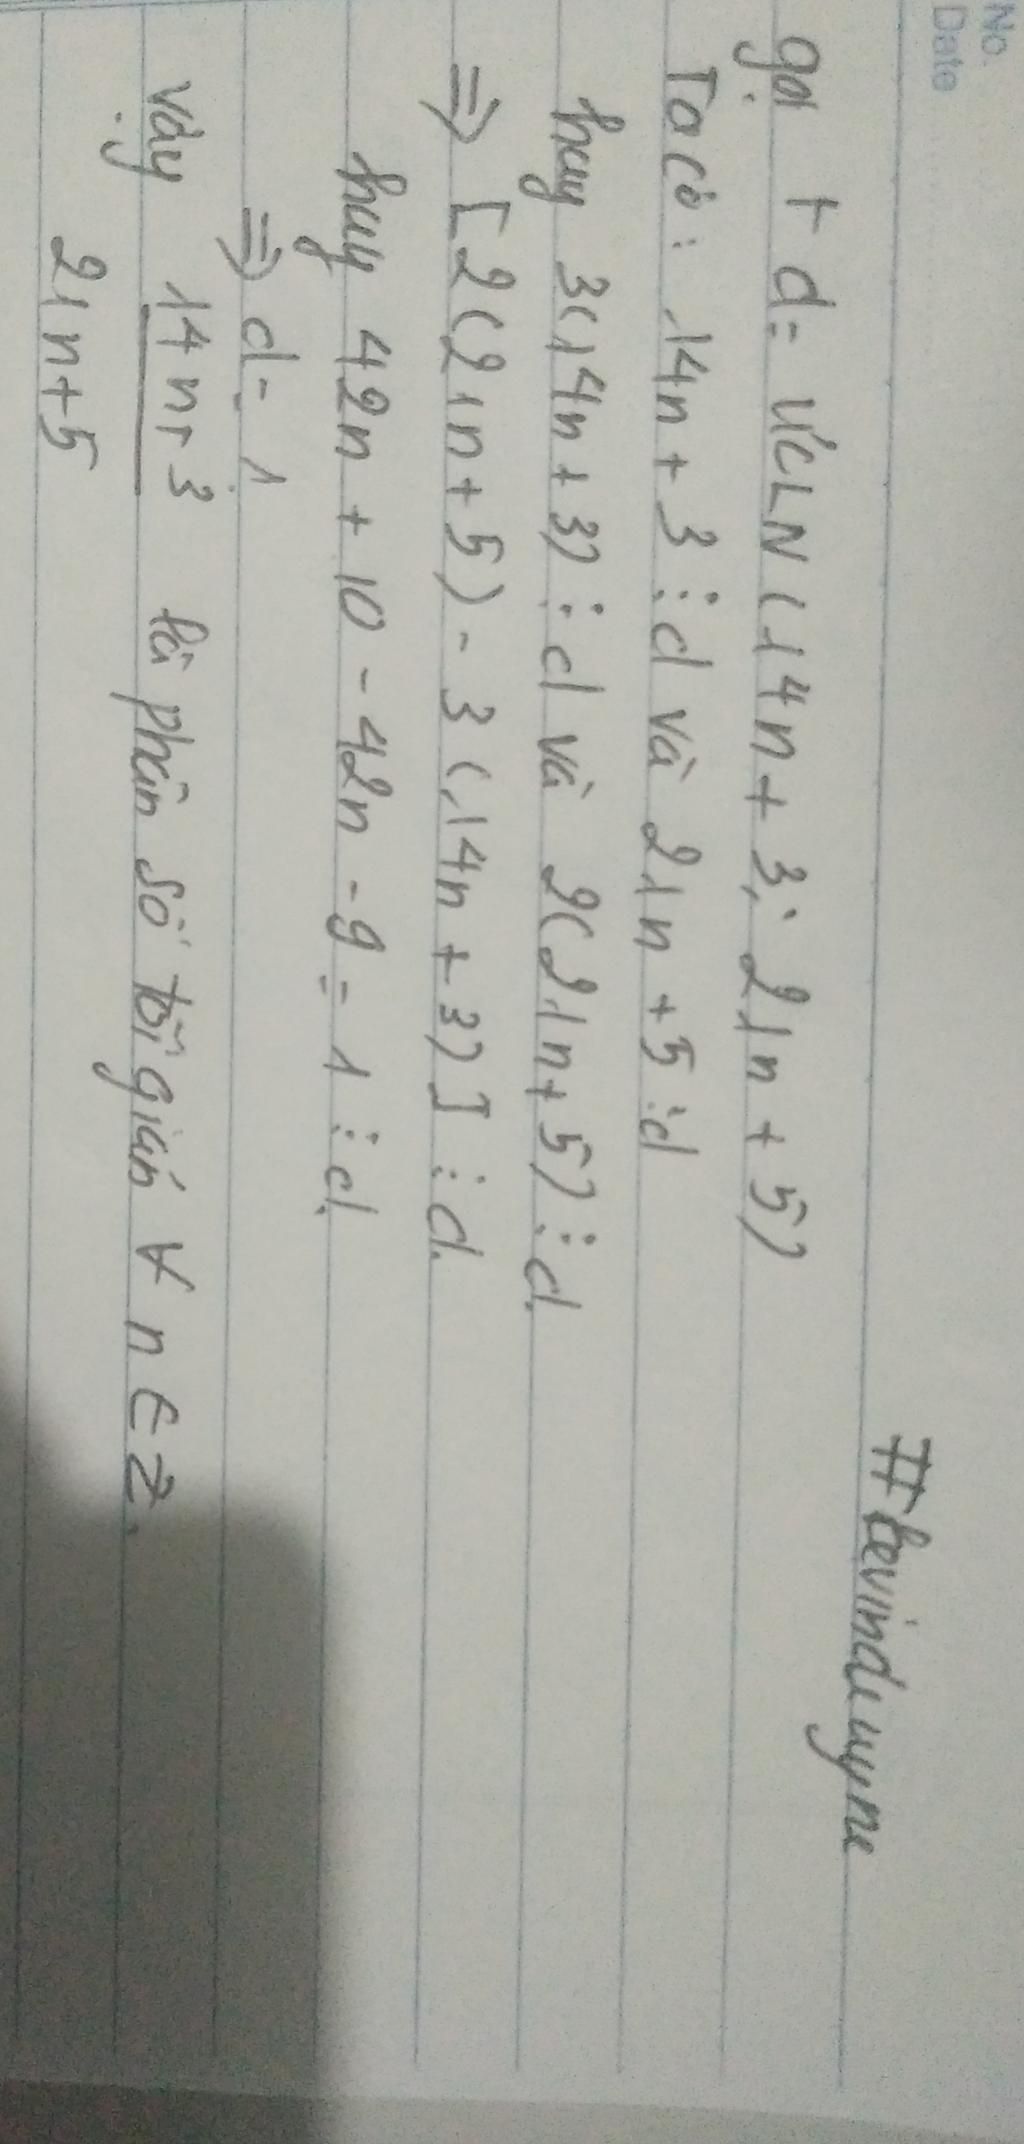 No.
Date
#levinduynu
gọi t d = ƯCLN (14n + 3; 21n + 5)
Ta có: 14n + 3 ⋮ d và 21n + 5 ⋮ d
hay 3(14n + 3) ⋮ d và 2(21n + 5) ⋮ d.
⇒ [2(21n + 5) - 3(14n + 3)] ⋮ d.
hay 42n + 10 - 42n - 9 = 1 ⋮ d.
⇒ d = 1
Vậy 14n+3 là phân số tối giản ∀ n ∈ Z.
21n+5